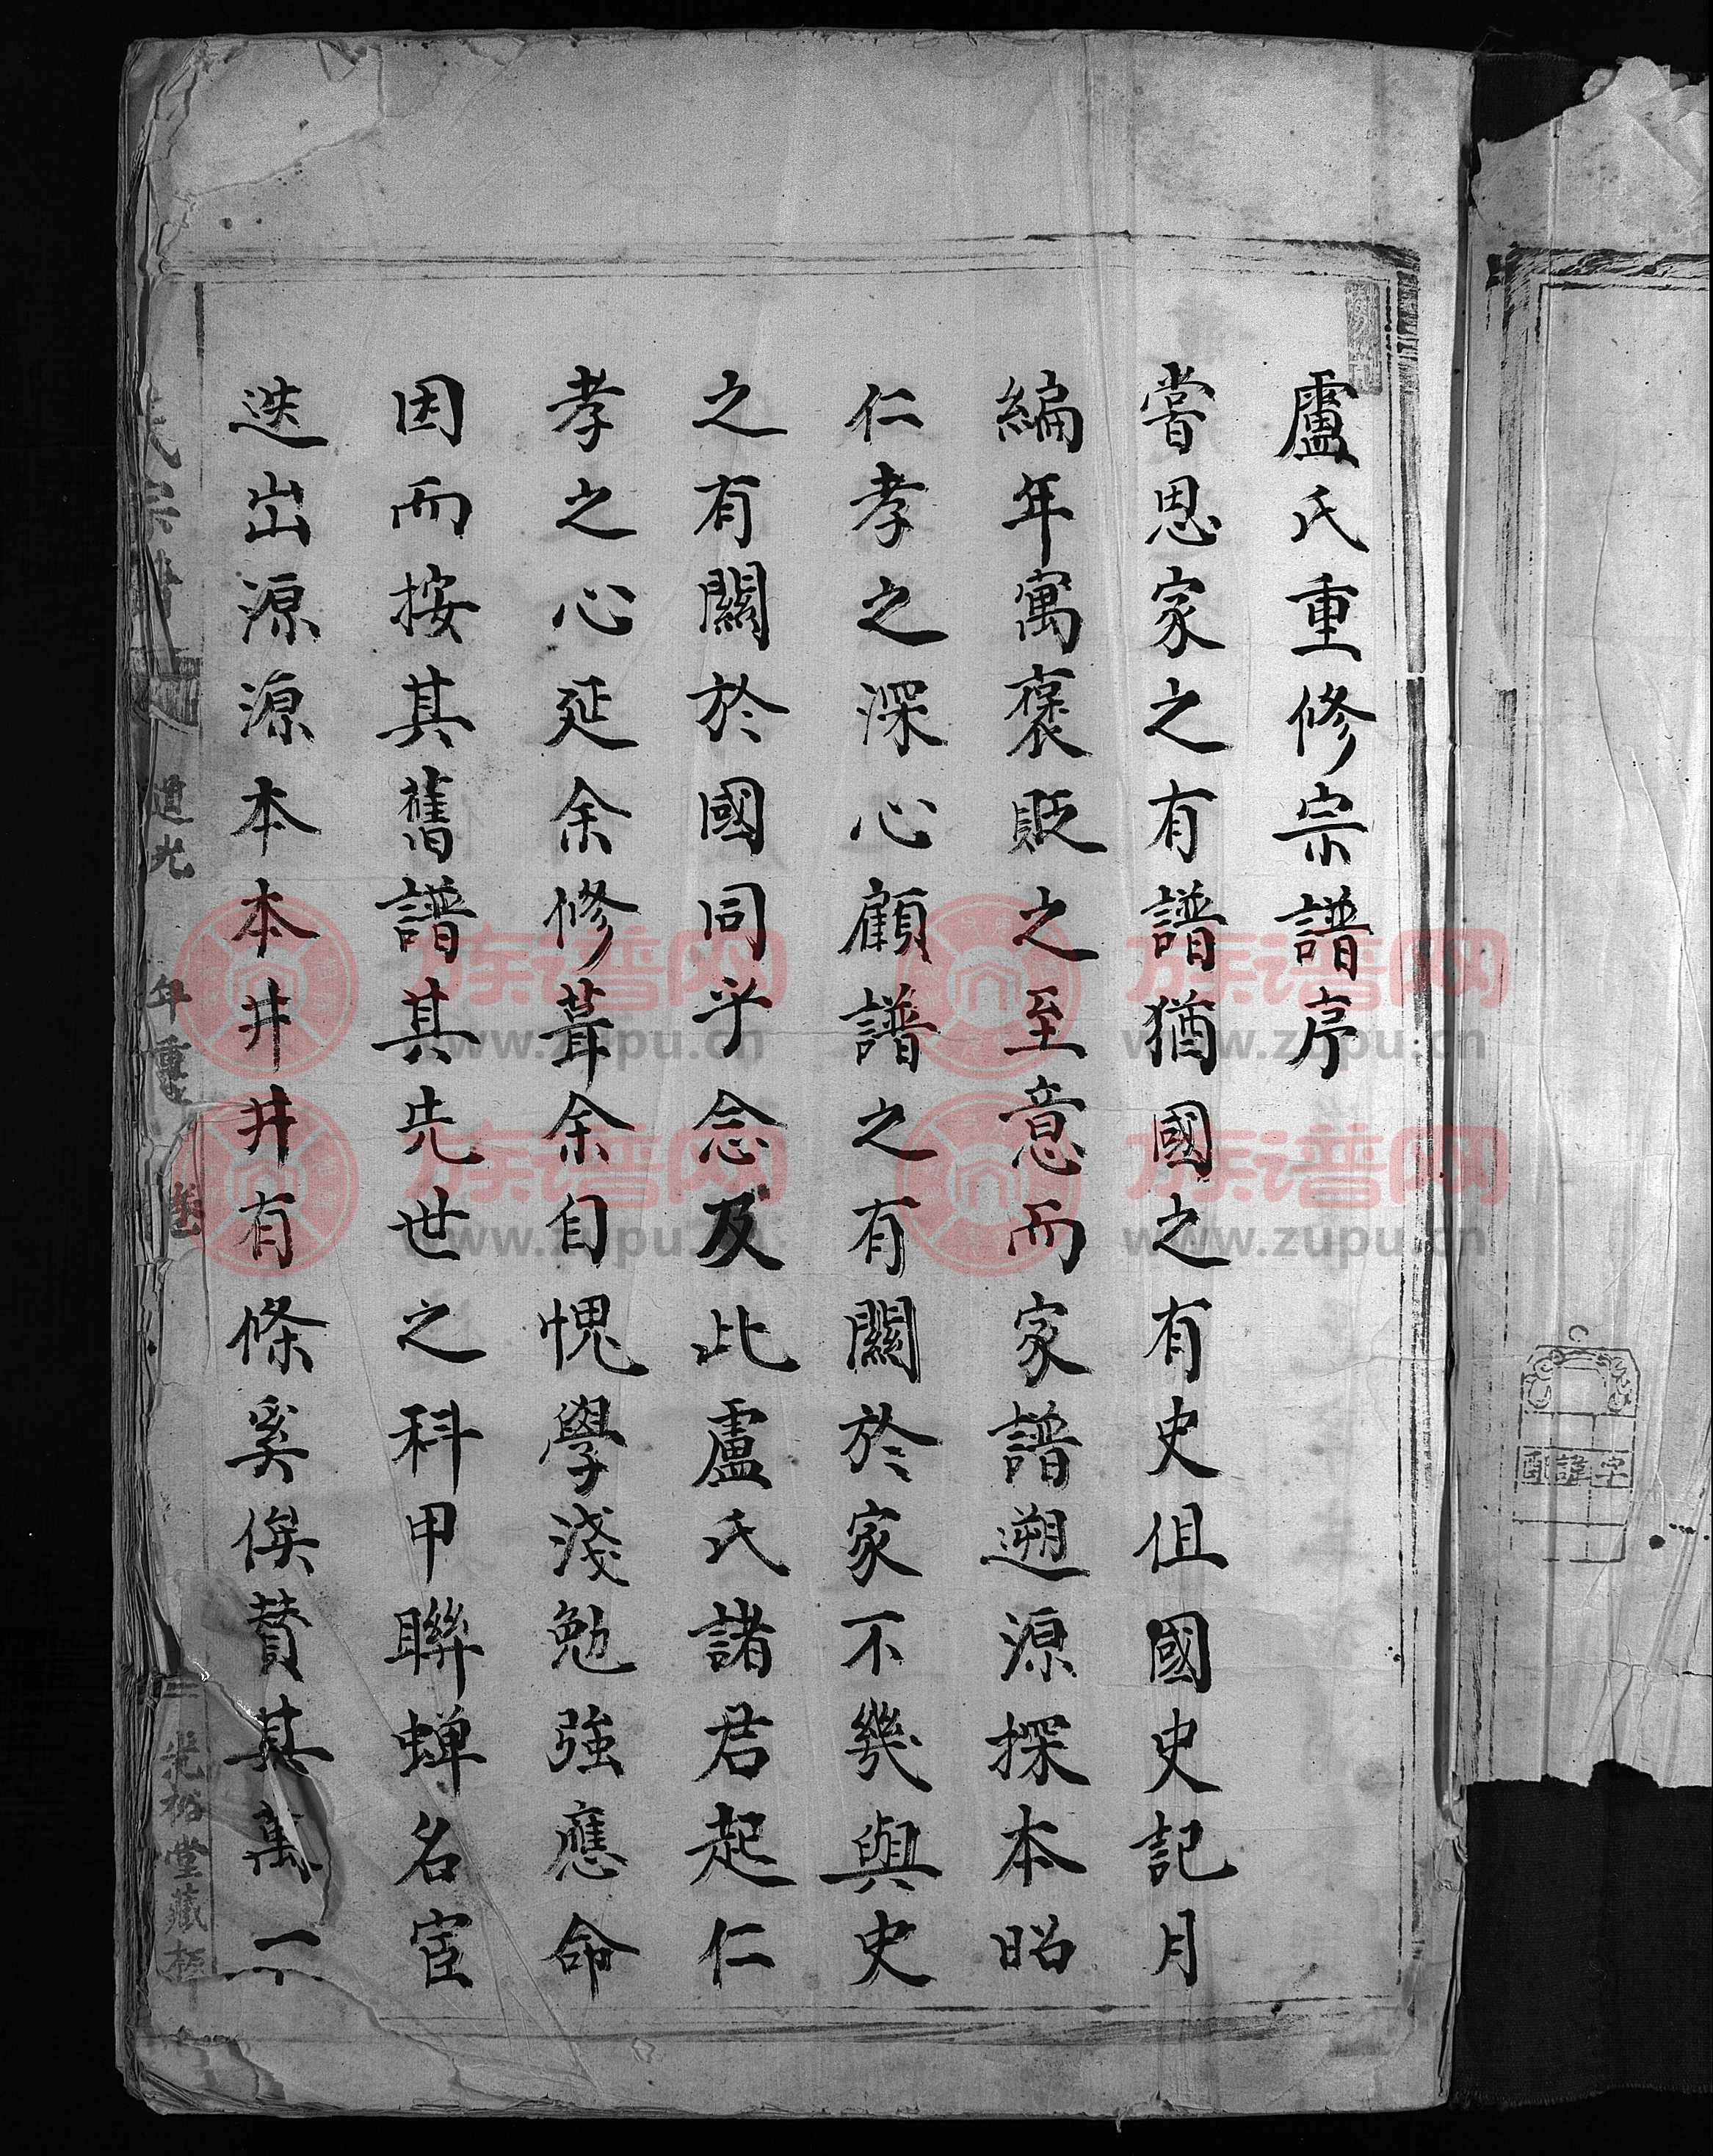 盧氏重修宗譜序
嘗思家之有譜猶國之有史但國史記月
編年寓褒貶之至意而家譜遡源探本昭
仁孝之深心顧譜之有關於家不幾與史
之有關於國同乎念及此盧氏諸君起仁
孝之心延余修葺余自愧學淺勉強應命
因而按其舊譜其先世之科甲聯蟬名宦
迭出源源本本井井有條奚俟贊其萬一
氏宗譜
道光 年重
光裕堂藏板
字諱配
族谱网
www.zupu.cn
族谱网
www.zupu.cn
族谱网
www.zupu.cn
族谱网
www.zupu.cn